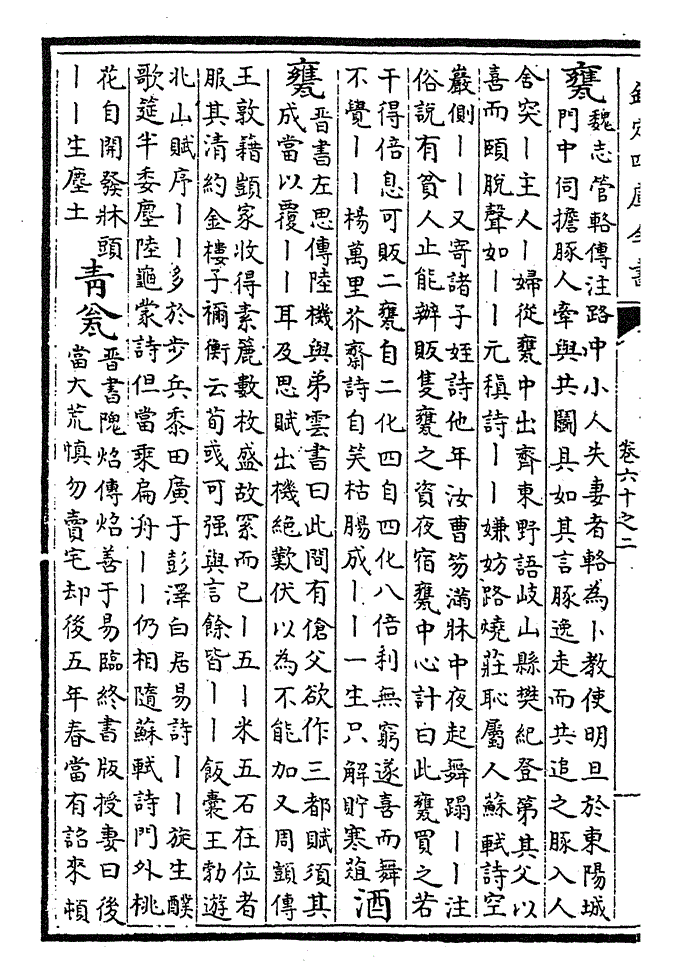 欽定四庫全書
卷六十之二
甕
魏志管輅傳注路中小人失妻者輅為卜教使明旦於東陽城
門中伺擔豚人牽與共鬬具如其言豚逸走而共追之豚入人
舍突丨主人丨婦從甕中出齊東野語岐山縣樊紀登第其父以
喜而頤脫聲如丨丨元稹詩丨丨嫌妨路燒莊恥屬人蘇軾詩空
巖側丨丨又寄諸子姪詩他年汝曹笏滿牀中夜起舞蹋丨丨注
俗說有貧人止能辦販隻甕之資夜宿甕中心計曰此甕買之若
干得倍息可販二甕自二化四自四化八倍利無窮遂喜而舞
不覺丨丨楊萬里芥齋詩自笑枯腸成丨丨一生只解貯寒葅
酒
甕
晉書左思傳陸機與弟雲書曰此間有傖父欲作三都賦須其
成當以覆丨丨耳及思賦出機絕歎伏以為不能加又周顗傳
王敦籍顗家收得素簏數枚盛故絮而已丨五丨米五石在位者
服其清約金樓子禰衡云荀彧可强與言餘皆丨丨飯囊王勃遊
北山賦序丨丨多於步兵黍田廣于彭澤白居易詩丨丨旋生醭
歌筵半委塵陸龜蒙詩但當乘扁舟丨丨仍相隨蘇軾詩門外桃
花自開發牀頭
丨丨生塵土
青瓮
晉書隗炤傳炤善于易臨終書版授妻曰後
當大荒慎勿賣宅却後五年春當有詔來頓